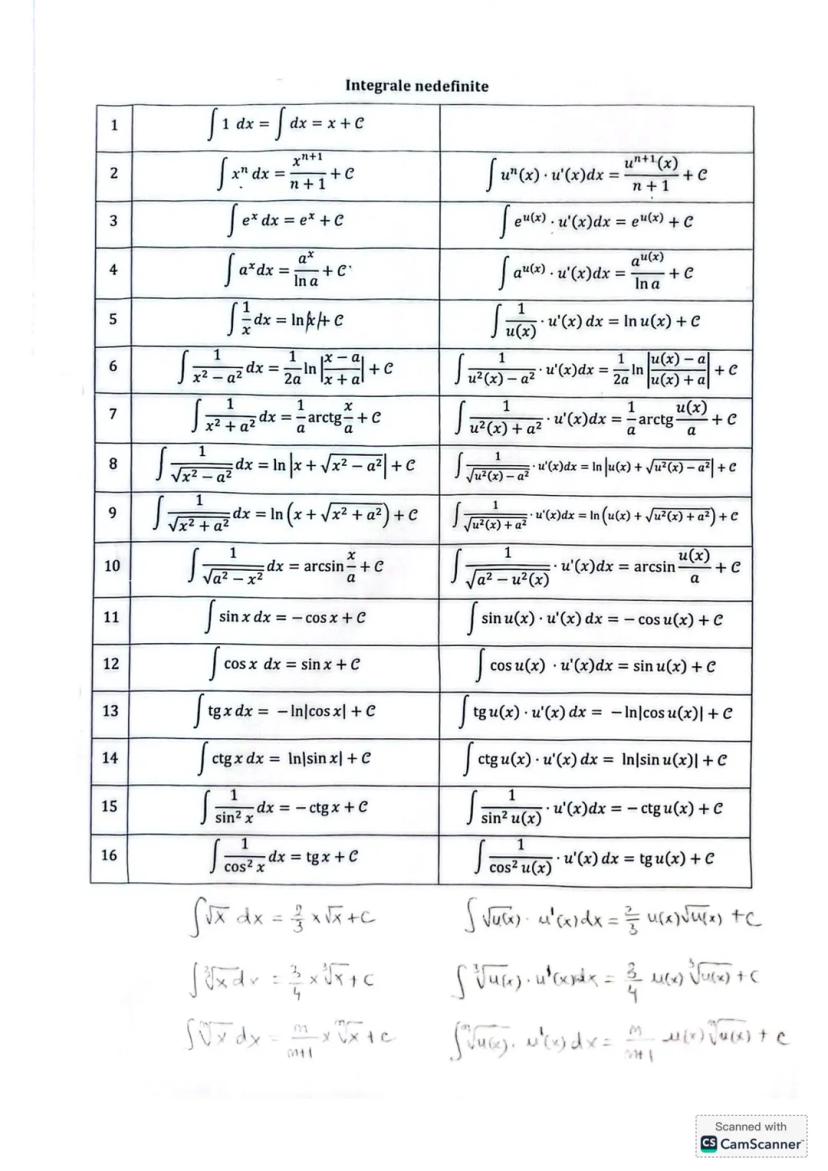 Integrale nedefinite
1 ∫ 1 dx = ∫ dx = x + C
2 ∫ xⁿ dx = xⁿ⁺¹/(n + 1) + C ∫ uⁿ(x) · u'(x)dx = uⁿ⁺¹(x)/(n + 1) + C
3 ∫ eˣ dx = eˣ + C ∫ e^(u(x)) · u'(x)dx = e^(u(x)) + C
4 ∫ aˣdx = aˣ/ln a + C ∫ a^(u(x)) · u'(x)dx = a^(u(x))/ln a + C
5 ∫ 1/x dx = ln|x| + C ∫ 1/u(x) · u'(x) dx = ln u(x) + C
6 ∫ 1/(x² − a²) dx = 1/2a ln |(x − a)/(x + a)| + C ∫ 1/(u²(x) − a²) · u'(x)dx = 1/2a ln |(u(x) − a)/(u(x) + a)| + C
7 ∫ 1/(x² + a²) dx = 1/a arctg x/a + C ∫ 1/(u²(x) + a²) · u'(x)dx = 1/a arctg u(x)/a + C
8 ∫ 1/√(x² − a²) dx = ln |x + √(x² − a²)| + C ∫ 1/√(u²(x) − a²) · u'(x)dx = ln |u(x) + √(u²(x) − a²)| + C
9 ∫ 1/√(x² + a²) dx = ln (x + √(x² + a²)) + C ∫ 1/√(u²(x) + a²) · u'(x)dx = ln (u(x) + √(u²(x) + a²)) + C
10 ∫ 1/√(a² − x²) dx = arcsin x/a + C ∫ 1/√(a² − u²(x)) · u'(x)dx = arcsin u(x)/a + C
11 ∫ sin x dx = − cos x + C ∫ sin u(x) · u'(x) dx = − cos u(x) + C
12 ∫ cos x dx = sin x + C ∫ cos u(x) · u'(x)dx = sin u(x) + C
13 ∫ tg x dx = − ln|cos x| + C ∫ tg u(x) · u'(x) dx = − ln|cos u(x)| + C
14 ∫ ctg x dx = ln|sin x| + C ∫ ctg u(x) · u'(x) dx = ln|sin u(x)| + C
15 ∫ 1/sin² x dx = − ctg x + C ∫ 1/sin² u(x) · u'(x)dx = − ctg u(x) + C
16 ∫ 1/cos² x dx = tg x + C ∫ 1/cos² u(x) · u'(x) dx = tg u(x) + C
∫ √x dx = 2/3 x √x + C ∫ √u(x) · u'(x) dx = 2/3 u(x) √u(x) + C
∫ ∛x dx = 3/4 x ∛x + C ∫ ∛u(x) · u'(x) dx = 3/4 u(x) ∛u(x) + C
∫ ⁿ√x dx = n/(n+1) x ⁿ√x + C ∫ ⁿ√u(x) · u'(x) dx = n/(n+1) u(x) ⁿ√u(x) + C
Scanned with
CS CamScanner